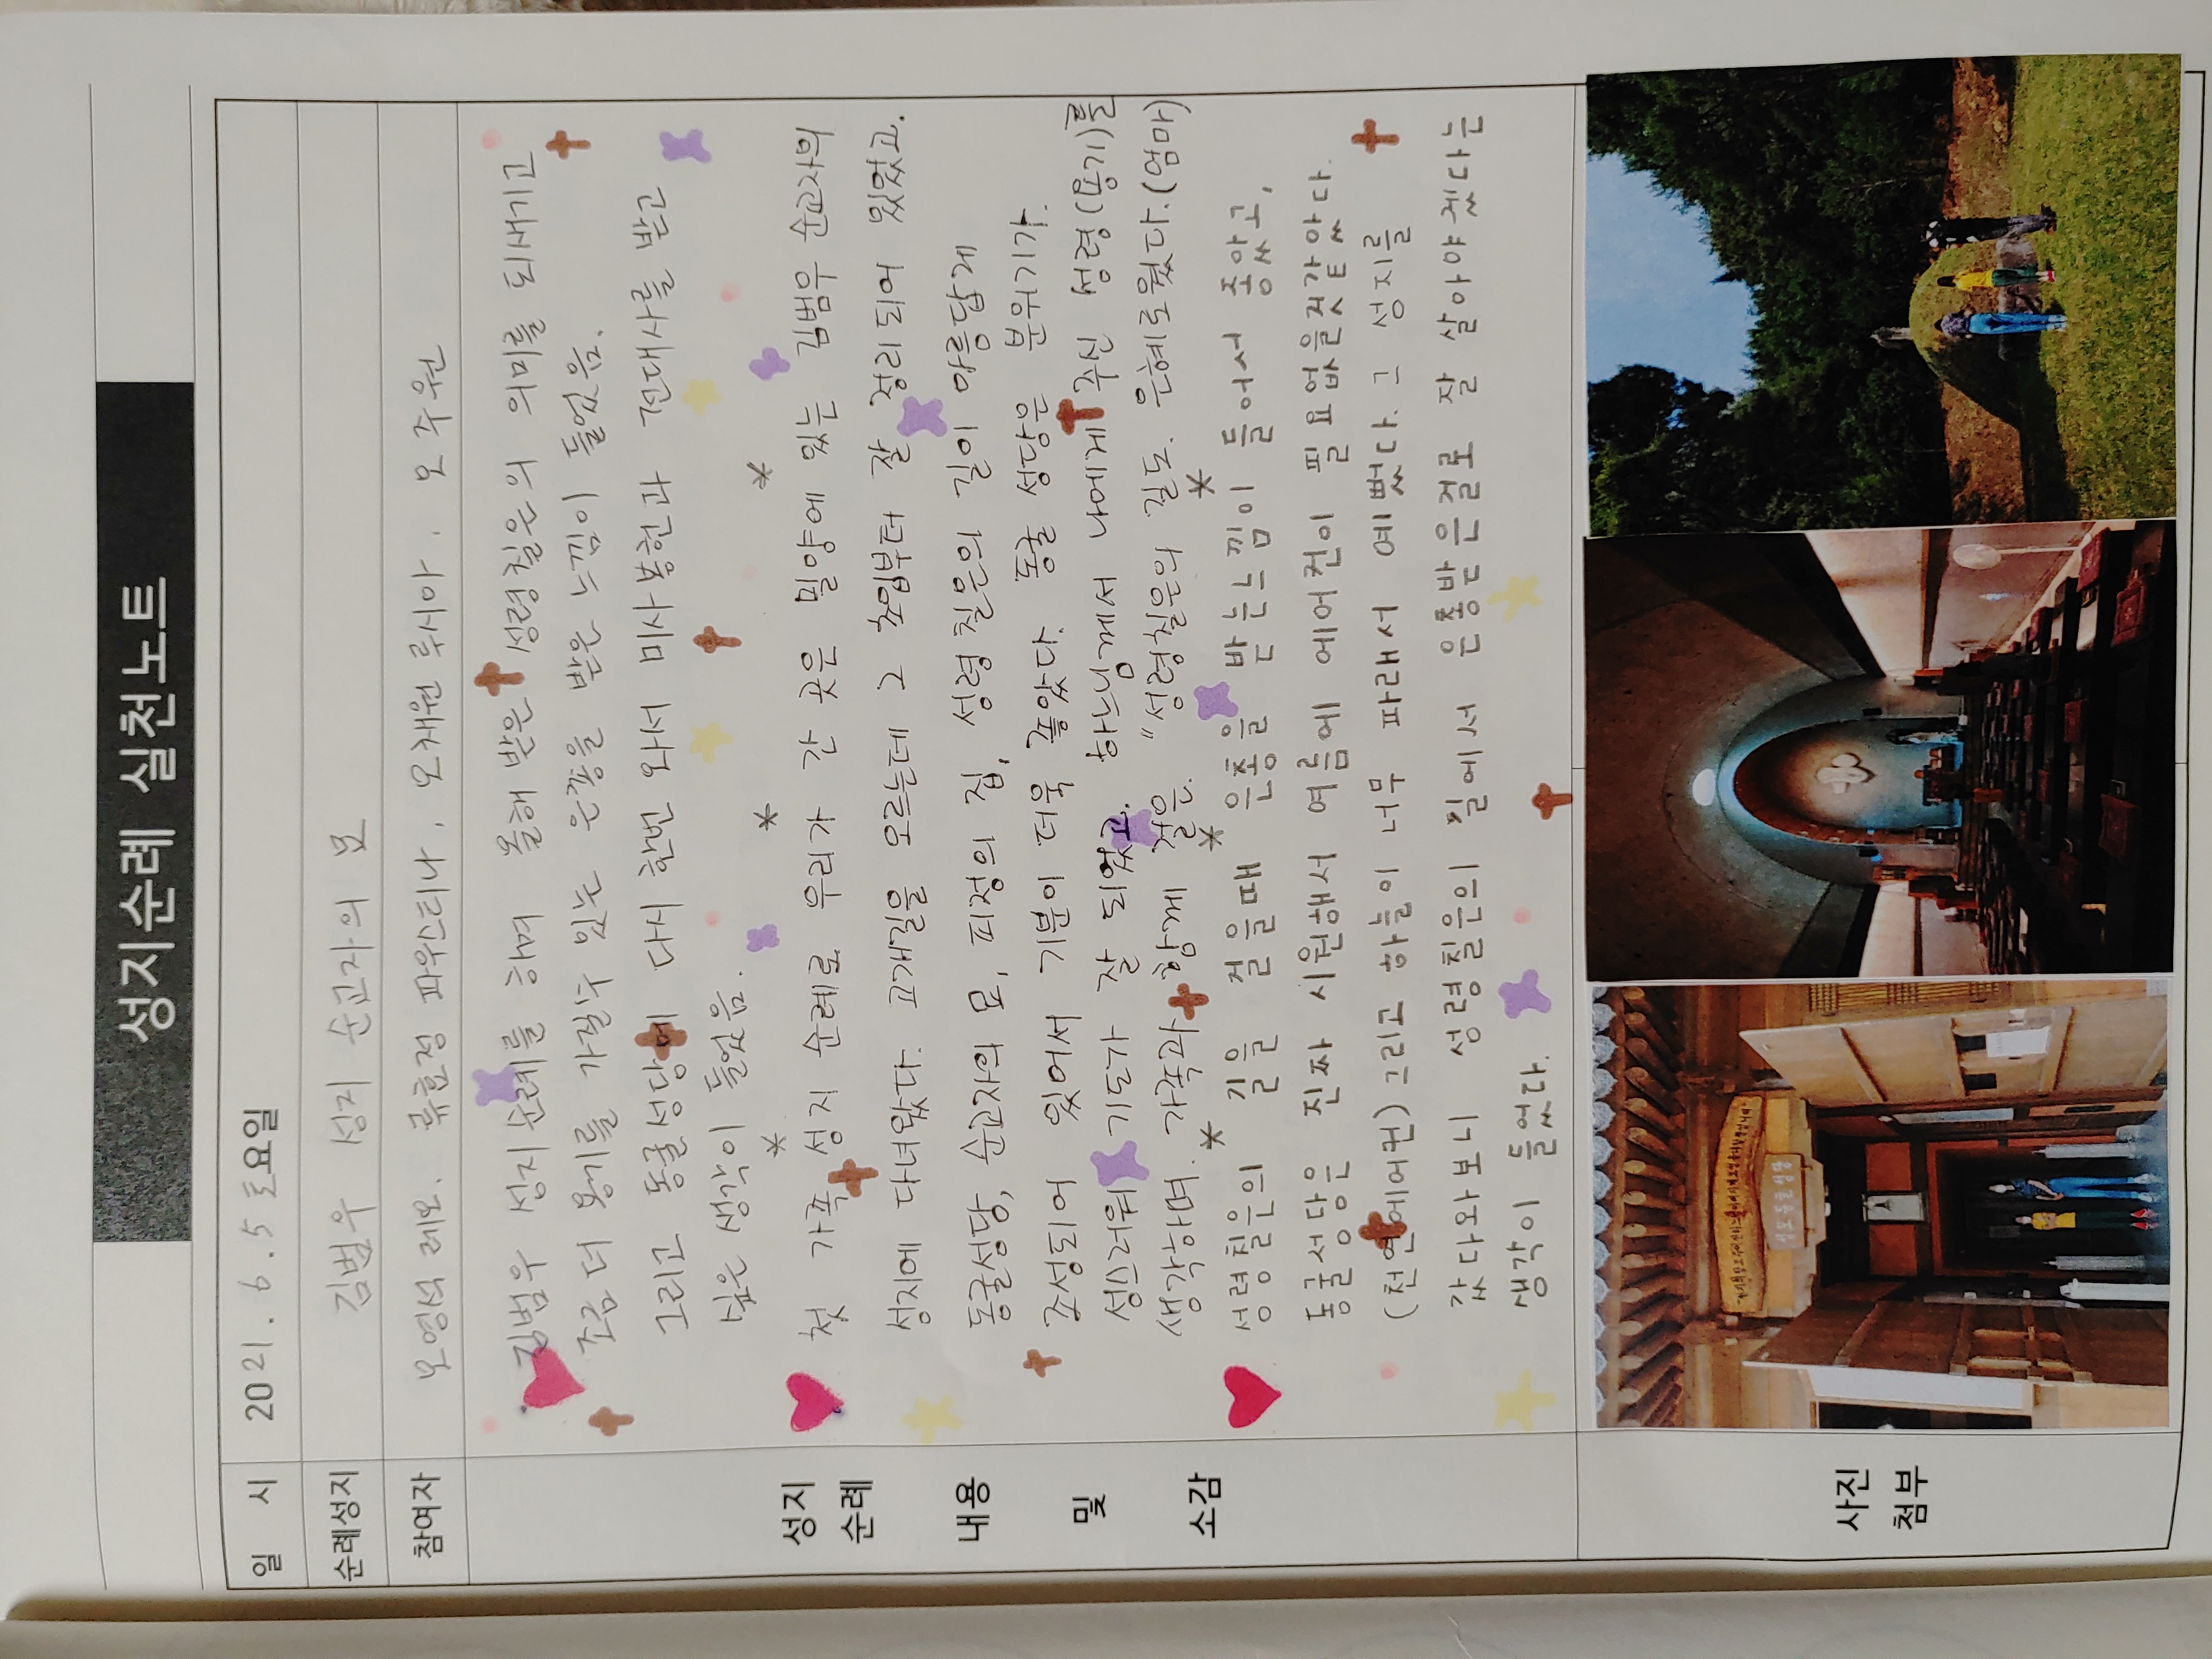 성지순례 실천노트
일 시 2021. 6. 5 토요일
순례성지 김범우 성지 순교자의 묘
참여자 오영석 레오. 류효정 파우스티나, 오채원 루시아, 오주원
성지순례 내용 및 소감
김범우 성지순례를 하며 올해 받은 성령칠은의 의미를 되새기고
조금 더 용기를 가질수 있는 은총을 받은 느낌이 들었음.
그리고 동굴성당에 다시 한번 와서 미사봉헌과 전대사를 받고
싶은 생각이 들었음.
첫 가족 성지 순례로 우리가 간 곳은 밀양에 있는 김범우 순교자의
성지에 다녀왔다. 고개길을 오르는데 그 초입부터 잘 정리되어 있었고.
동굴성당, 순교자의 묘, 피정의 집, 성령칠은의 길이 아름답게
조성되어 있어서 기분이 더욱 좋았다. 동굴 성당은 분위기가
성스러워 기도가 잘 되었고. 하느님께서 나에게 주신 성령(용기)를
생각하며. 가족과 함께 걸은. "성령칠은의 길도. 은혜로웠다.(엄마)
성령칠은의 길을 걸을때 은총을 받는느낌이 들어서 좋았고,
동굴성당은 진짜 시원해서 여름에 에어컨이 필요없을것같았다.
(천연에어컨) 그리고 하늘이 너무 파래서 예뻤다. 그 성지를
갔다와보니 성령칠은의 길에서 은총받은걸로 잘 살아야겠다는
생각이 들었다.
사진첨부
성모동굴성당